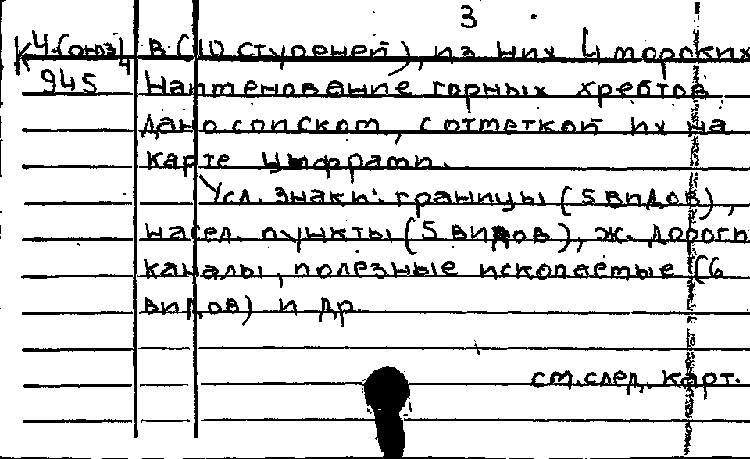 3
К4.(англ) в (10 ступеней), из них 4 морских
945 Наименование горных хребтов
дано списком, с отметкой их на
карте цифрами.
Усл. знаки: границы (5 видов),
насел. пункты (5 видов), ж. дороги
каналы, полезные ископаемые (6
видов) и др.
см. след. карт.